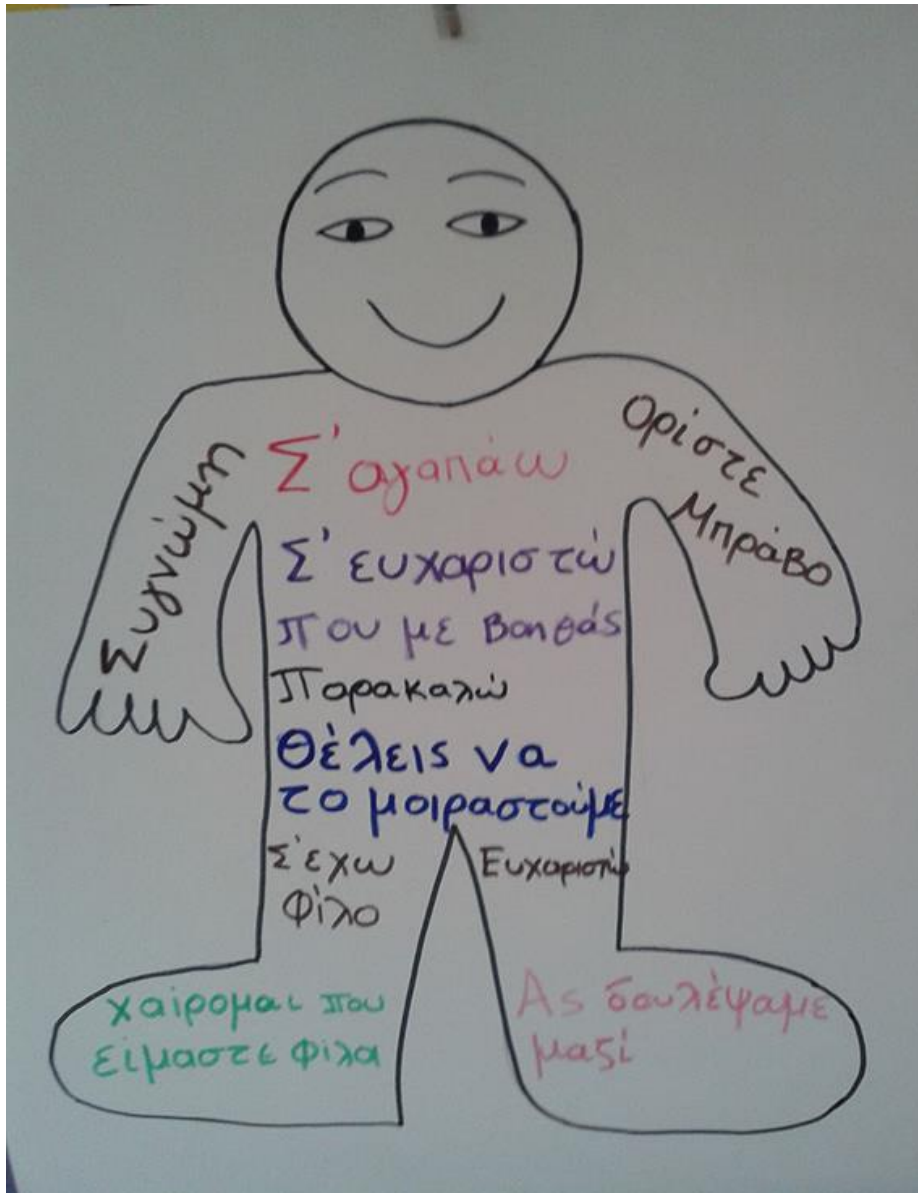 Συγνώμη
Σ' αγαπάω
Ορίστε
Μπράβο
Σ' ευχαριστώ
που με βοηθάς
Παρακαλώ
Θέλεις να
το μοιραστούμε
Σ' έχω
φίλο
Ευχαριστώ
χαίρομαι που
είμαστε φίλα
Ας δουλέψαμε
μαζί